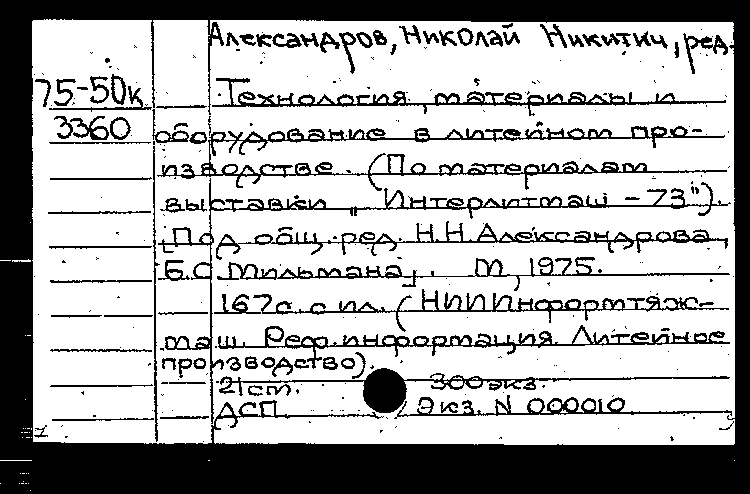 Александров, Николай Никитич, ред.
75-50к
3360
Технология, материалы и
оборудование в литейном про-
изводстве. (По материалам
выставки „Интерлитмаш – 73").
[Под общ. ред. Н.Н. Александрова,
Б.С. Мильмана]. М, 1975.
167 с. с ил. (НИИИнформтяж-
маш. Реф. информация. Литейное
производство).
21 ст. 300 экз.
ДСП. Экз. N 000010
1